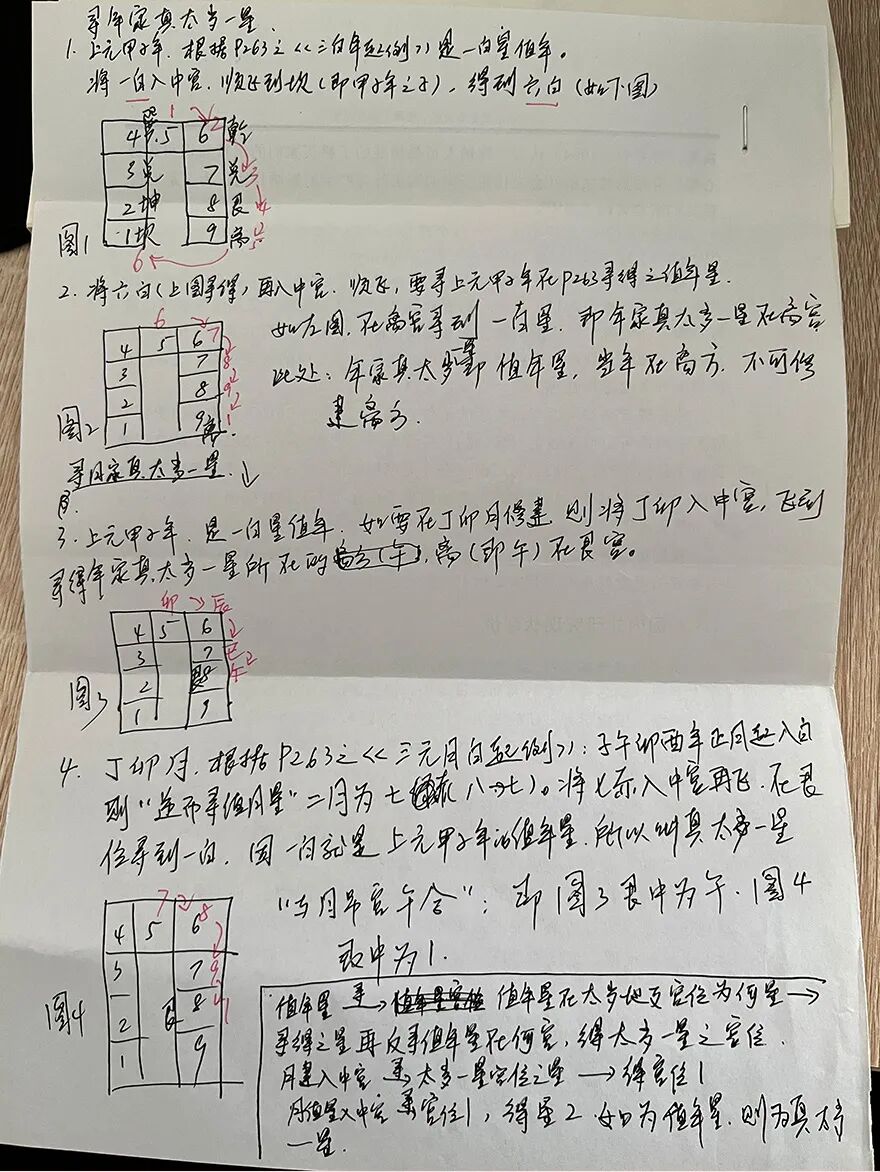 寻年家真太岁一星.
1. 上元甲子年. 根据P263之《三白年起例》是一白星值年。
将一白入中宫. 顺飞到坎(即甲子年之子), 得到六白(如下图)
1 2
4 巽 5 6 乾
3 兑 7 兑 3
2 坤 8 艮 4
1 坎 9 离 5
图1
6
2. 将六白(上图寻得)再入中宫. 顺飞, 要寻上元甲子年在P263寻得之值年星.
如左图, 在离宫寻到一白星. 即年家真太岁一星在离宫
此处: 年家真太岁星即值年星, 当年在离方. 不可修
建离方.
6
4 5 6 7
3 7 8
2 8 9
1 9 离 1
图2
寻月家真太岁一星.
3. 上元甲子年. 是一白星值年. 如要在丁卯月修建 则将丁卯入中宫, 飞到
寻得年家真太岁一星所在的离方(午), 离(即午)在艮宫。
卯 辰
4 5 6
3 7 巳
2 艮 8 午
1 9
图3
4. 丁卯月. 根据P263之《三元月白起例》: 子午卯酉年正月起八白
则"逆而寻值月星"二月为七赤(八→七)。将七赤入中宫再飞. 在艮
位寻到一白. 因一白就是上元甲子年的值年星. 所以叫真太岁一星
"与月吊宫午合": 即图3艮中为午. 图4
艮中为1.
7 8
4 5 6
3 7 9
2 艮 8 1
1 9
图4
值年星 寻→ 值年星在太岁地支宫位为何星→
寻得之星再反寻值年星在何宫, 得太岁一星之宫位.
月建入中宫 寻→ 太岁一星宫位之星 → 得宫位1
月值星入中宫 寻宫位1, 得星2. 如为值年星. 则为真太岁
一星.